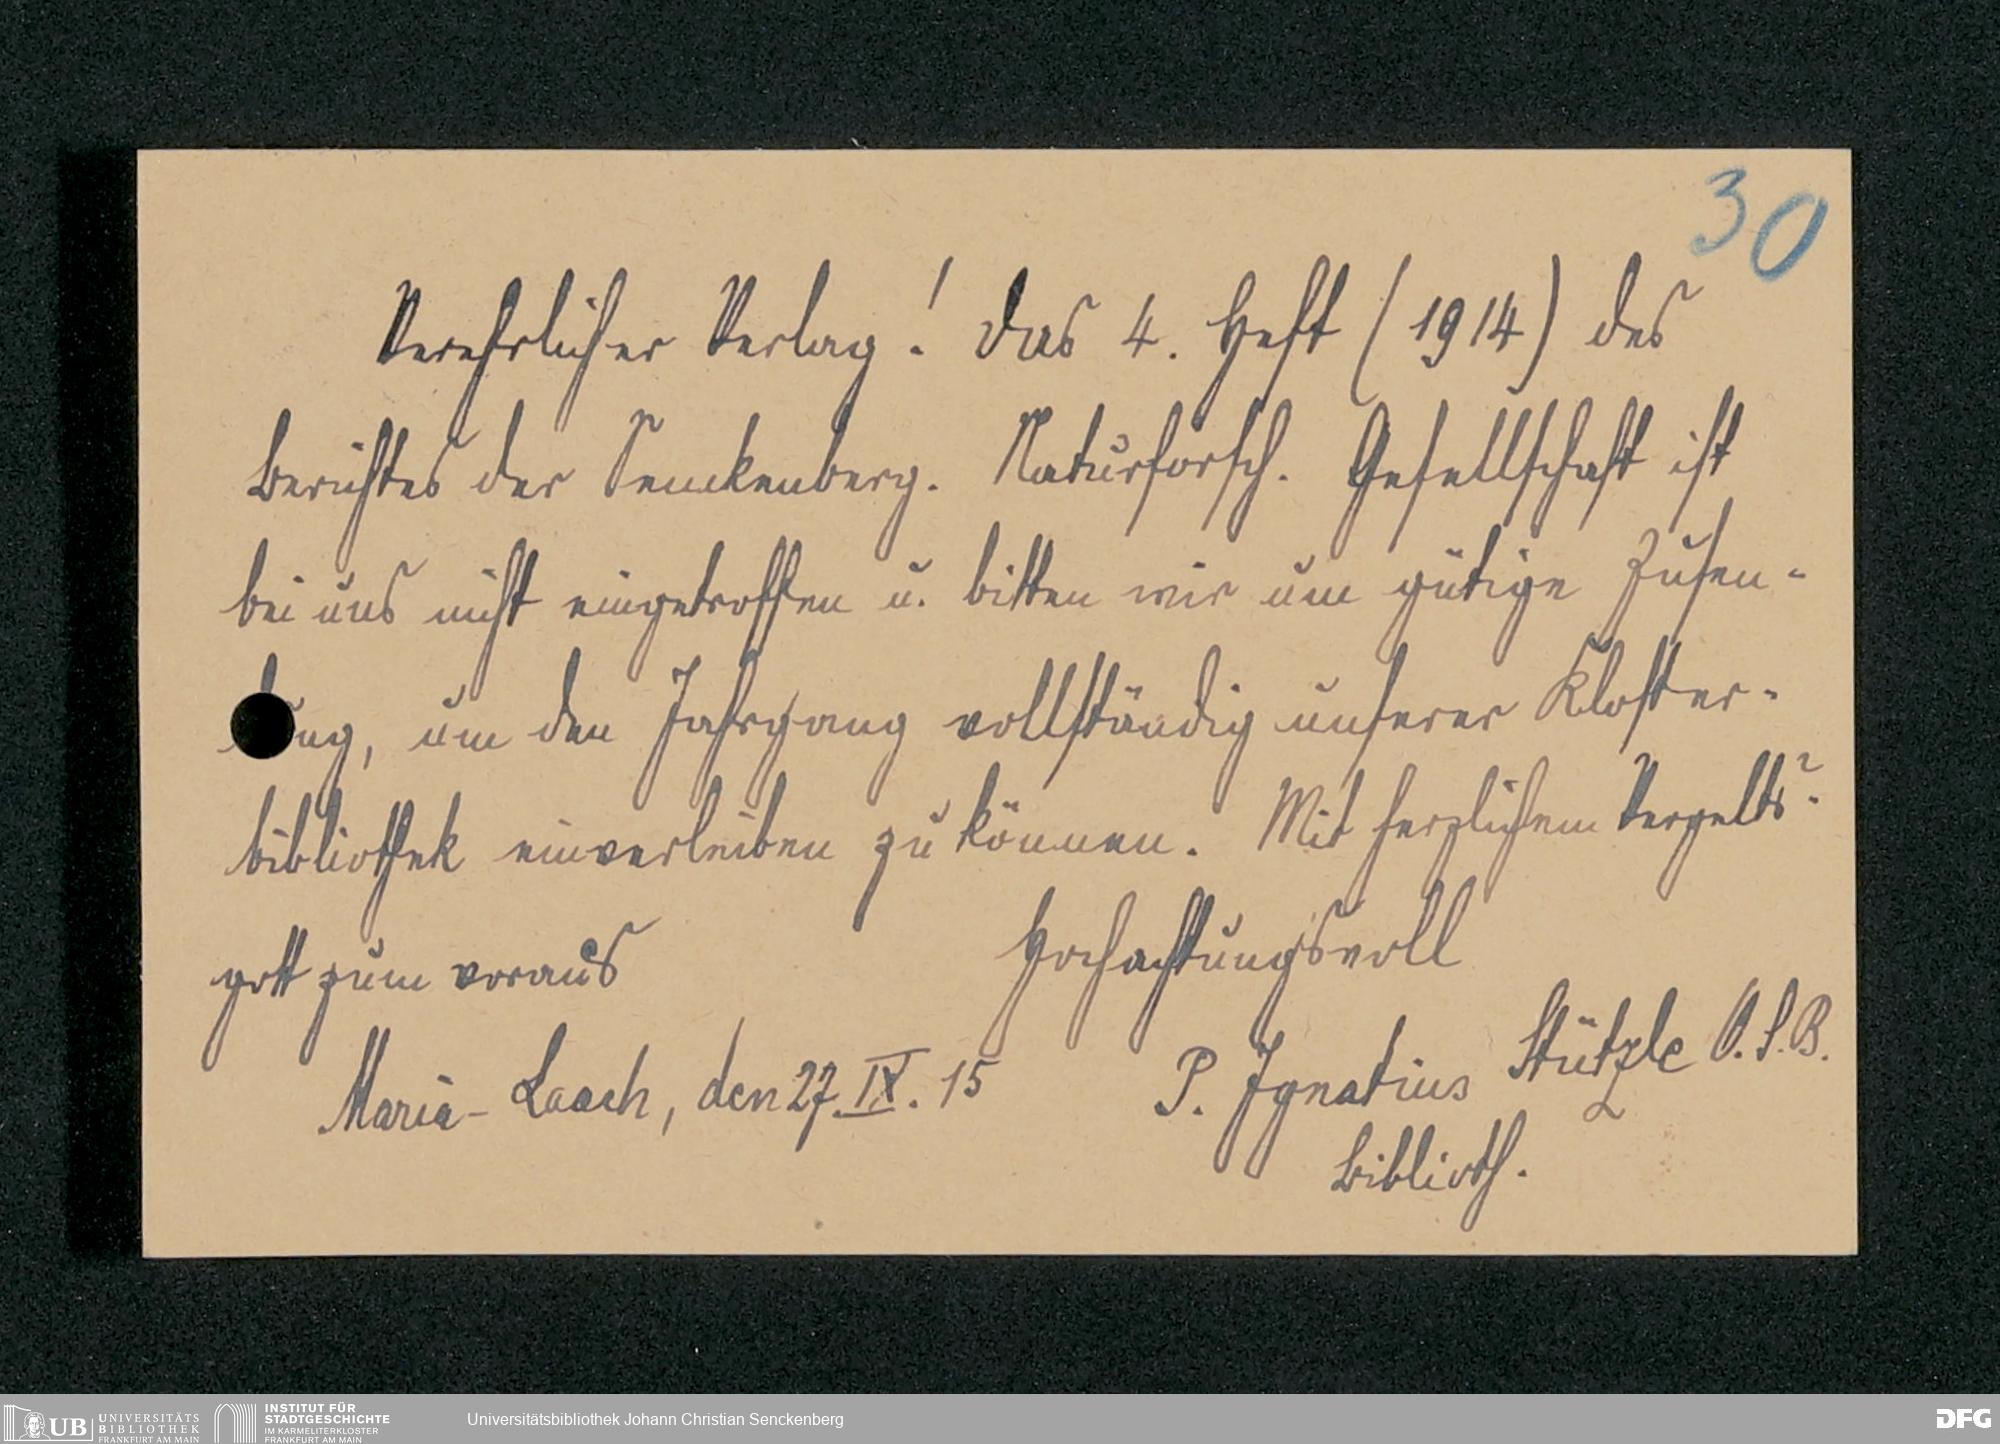 30
Verehrlicher Verlag! Das 4. Heft (1914) des
Berichtes der Senckenberg. Naturforsch. Gesellschaft ist
bei uns nicht eingetroffen u. bitten wir um gütige Zusen-
dung, um den Jahrgang vollständig unserer Kloster-
bibliothek einverleiben zu können. Mit herzlichem Vergelts-
gott zum voraus Hochachtungsvoll
Maria-Laach, den 27. IX. 15 P. Ignatius Stützle O.S.B.
Biblioth.
UB UNIVERSITÄTS
BIBLIOTHEK
FRANKFURT AM MAIN
INSTITUT FÜR
STADTGESCHICHTE
IM KARMELITERKLOSTER
FRANKFURT AM MAIN
Universitätsbibliothek Johann Christian Senckenberg
DFG